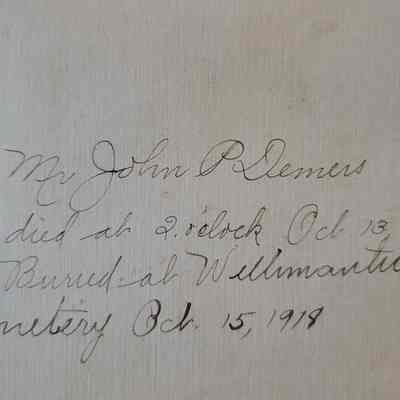 Mr John P Demers
died at 2.o'clock Oct 13,
Buried at Willimantic
metery Oct. 15, 1918